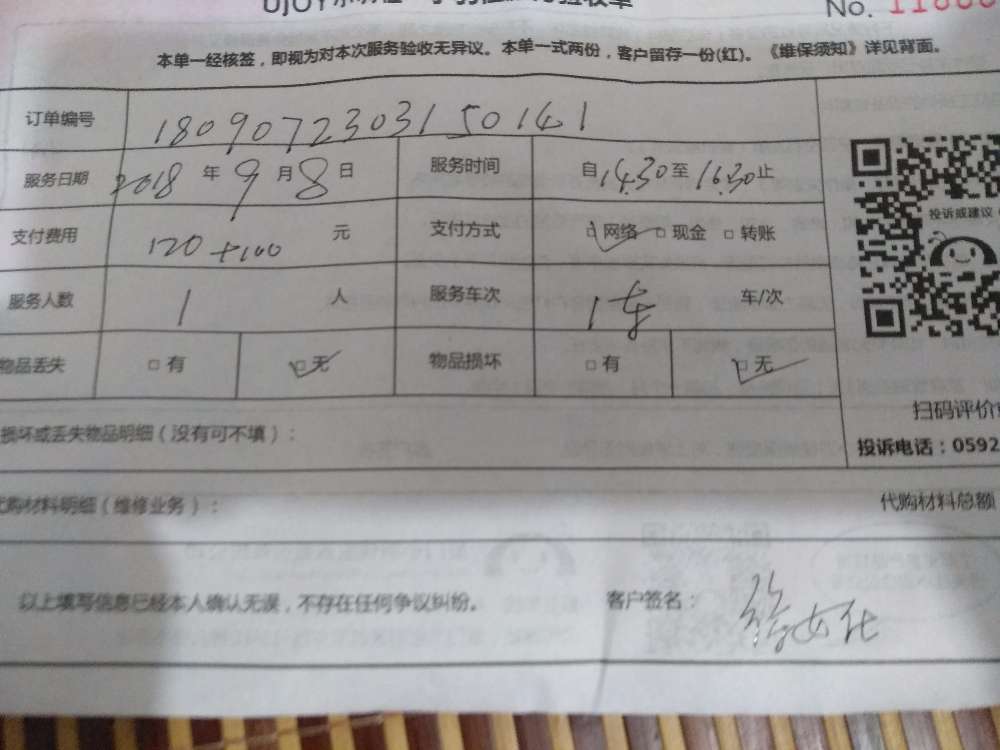 No. 11
本单一经核签，即视为对本次服务验收无异议。本单一式两份，客户留存一份(红)。《维保须知》详见背面。
订单编号 1809072303150141
服务日期 2018 年 9 月 8 日 服务时间 自 14.30 至 16.30 止
支付费用 120+100 元 支付方式 □ 网络 □ 现金 □ 转账
服务人数 1 人 服务车次 1车 车/次
物品丢失 □ 有 □ 无 物品损坏 □ 有 □ 无
投诉或建议
扫码评价
损坏或丢失物品明细（没有可不填）：
投诉电话：0592
代购材料明细（维修业务）：
代购材料总额
以上填写信息已经本人确认无误，不存在任何争议纠纷。 客户签名：